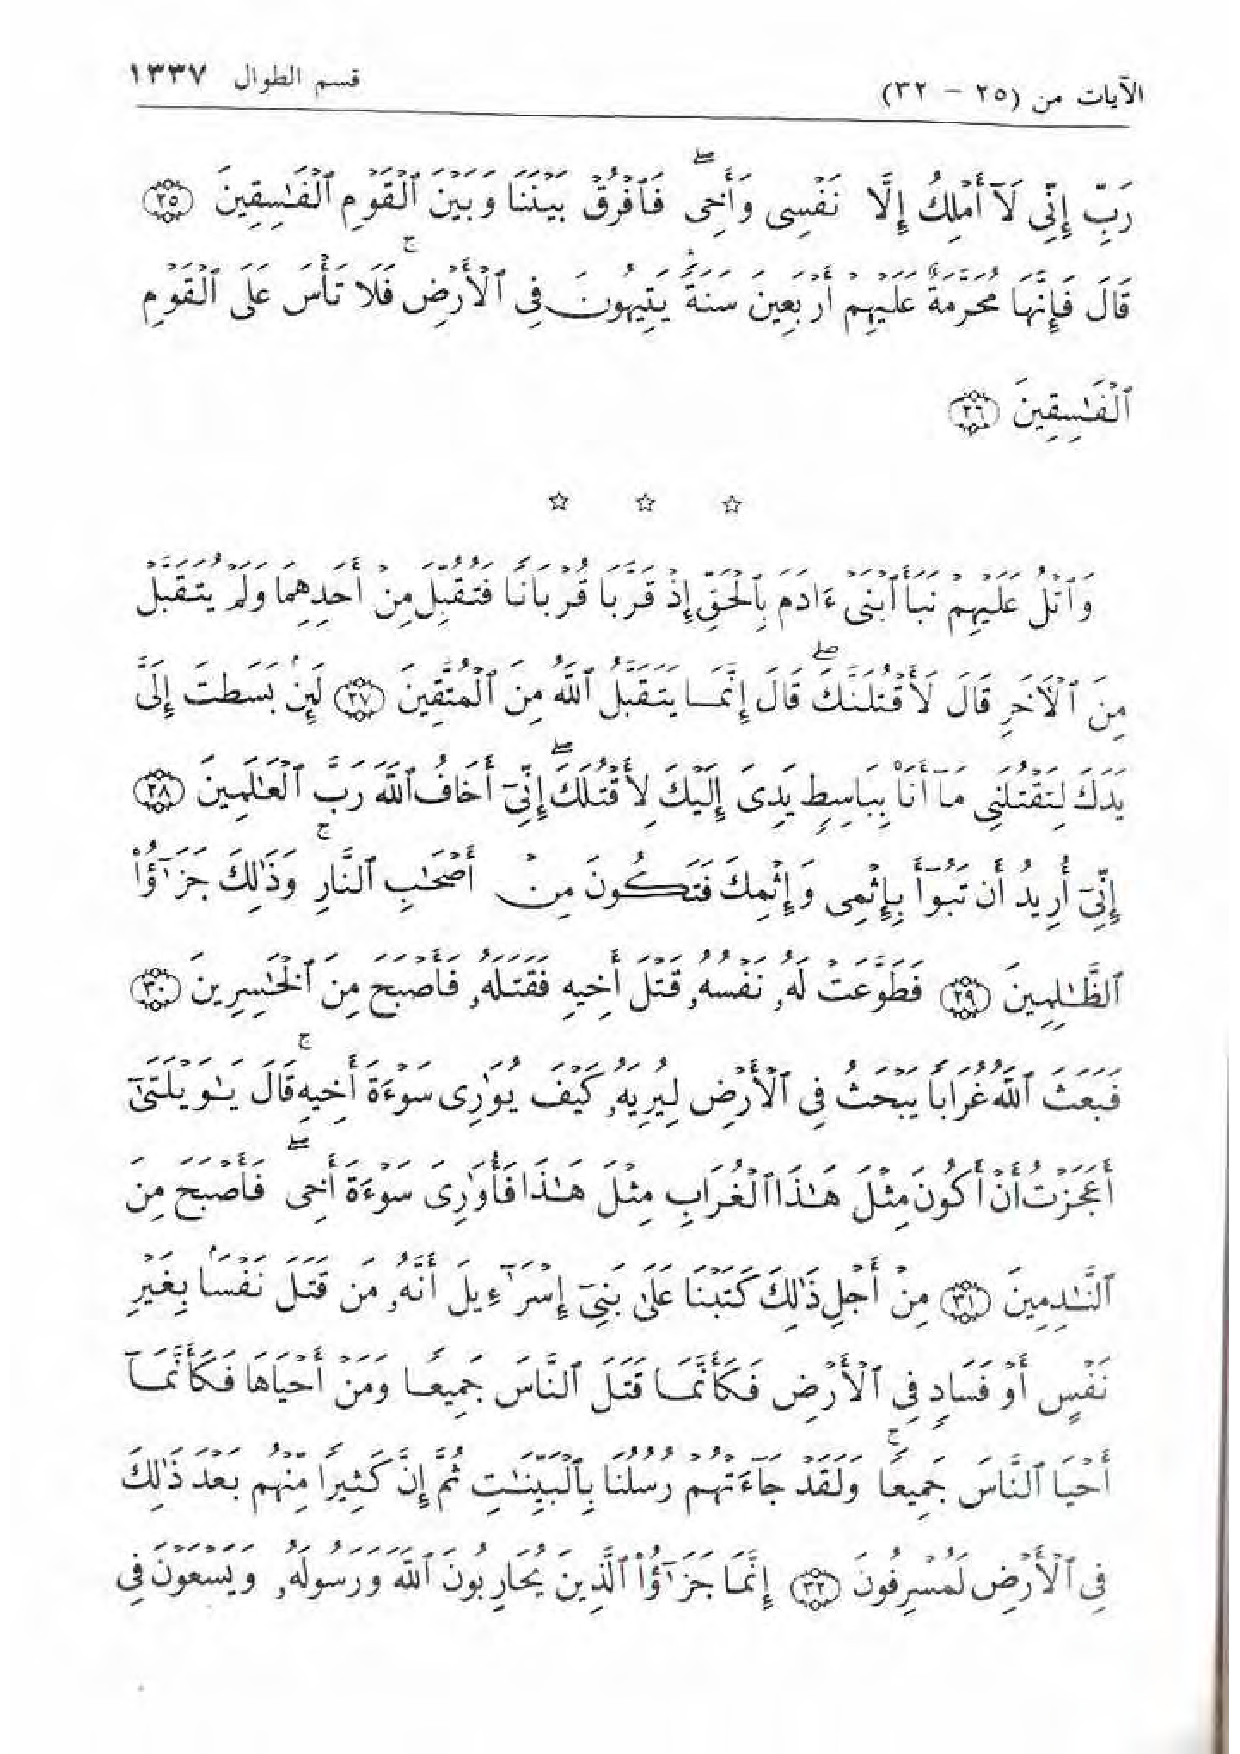 الآيات من (٢٥ - ٣٢)
قسم الطوال ١٣٣٧
رَبِّ إِنِّي لَآ أَمْلِكُ إِلَّا نَفْسِى وَأَخِى ۖ فَٱفْرُقْ بَيْنَنَا وَبَيْنَ ٱلْقَوْمِ ٱلْفَـٰسِقِينَ ﴿٢٥﴾
قَالَ فَإِنَّهَا مُحَرَّمَةٌ عَلَيْهِمْ أَرْبَعِينَ سَنَةً ۛ يَتِيهُونَ فِى ٱلْأَرْضِ ۚ فَلَا تَأْسَ عَلَى ٱلْقَوْمِ
ٱلْفَـٰسِقِينَ ﴿٢٦﴾
☆ ☆ ☆
وَٱتْلُ عَلَيْهِمْ نَبَأَ ٱبْنَىْ ءَادَمَ بِٱلْحَقِّ إِذْ قَرَّبَا قُرْبَانًا فَتُقُبِّلَ مِنْ أَحَدِهِمَا وَلَمْ يُتَقَبَّلْ
مِنَ ٱلْـَٔاخَرِ قَالَ لَأَقْتُلَنَّكَ ۖ قَالَ إِنَّمَا يَتَقَبَّلُ ٱللَّهُ مِنَ ٱلْمُتَّقِينَ ﴿٢٧﴾ لَئِنۢ بَسَطتَ إِلَىَّ
يَدَكَ لِتَقْتُلَنِى مَآ أَنَا۠ بِبَاسِطٍ يَدِىَ إِلَيْكَ لِأَقْتُلَكَ ۖ إِنِّىٓ أَخَافُ ٱللَّهَ رَبَّ ٱلْعَـٰلَمِينَ ﴿٢٨﴾
إِنِّىٓ أُرِيدُ أَن تَبُوٓأَ بِإِثْمِى وَإِثْمِكَ فَتَكُونَ مِنْ أَصْحَـٰبِ ٱلنَّارِ ۚ وَذَٰلِكَ جَزَٰٓؤُا۟
ٱلظَّـٰلِمِينَ ﴿٢٩﴾ فَطَوَّعَتْ لَهُۥ نَفْسُهُۥ قَتْلَ أَخِيهِ فَقَتَلَهُۥ فَأَصْبَحَ مِنَ ٱلْخَـٰسِرِينَ ﴿٣٠﴾
فَبَعَثَ ٱللَّهُ غُرَابًا يَبْحَثُ فِى ٱلْأَرْضِ لِيُرِيَهُۥ كَيْفَ يُوَٰرِى سَوْءَةَ أَخِيهِ ۚ قَالَ يَـٰوَيْلَتَىٰٓ
أَعَجَزْتُ أَنْ أَكُونَ مِثْلَ هَـٰذَا ٱلْغُرَابِ مِثْلَ هَـٰذَا فَأُوَٰرِىَ سَوْءَةَ أَخِى ۖ فَأَصْبَحَ مِنَ
ٱلنَّـٰدِمِينَ ﴿٣١﴾ مِنْ أَجْلِ ذَٰلِكَ كَتَبْنَا عَلَىٰ بَنِىٓ إِسْرَٰٓءِيلَ أَنَّهُۥ مَن قَتَلَ نَفْسًۢا بِغَيْرِ
نَفْسٍ أَوْ فَسَادٍ فِى ٱلْأَرْضِ فَكَأَنَّمَا قَتَلَ ٱلنَّاسَ جَمِيعًا وَمَنْ أَحْيَاهَا فَكَأَنَّمَآ
أَحْيَا ٱلنَّاسَ جَمِيعًا ۚ وَلَقَدْ جَآءَتْهُمْ رُسُلُنَا بِٱلْبَيِّنَـٰتِ ثُمَّ إِنَّ كَثِيرًا مِّنْهُم بَعْدَ ذَٰلِكَ
فِى ٱلْأَرْضِ لَمُسْرِفُونَ ﴿٣٢﴾ إِنَّمَا جَزَٰٓؤُا۟ ٱلَّذِينَ يُحَارِبُونَ ٱللَّهَ وَرَسُولَهُۥ وَيَسْعَوْنَ فِى